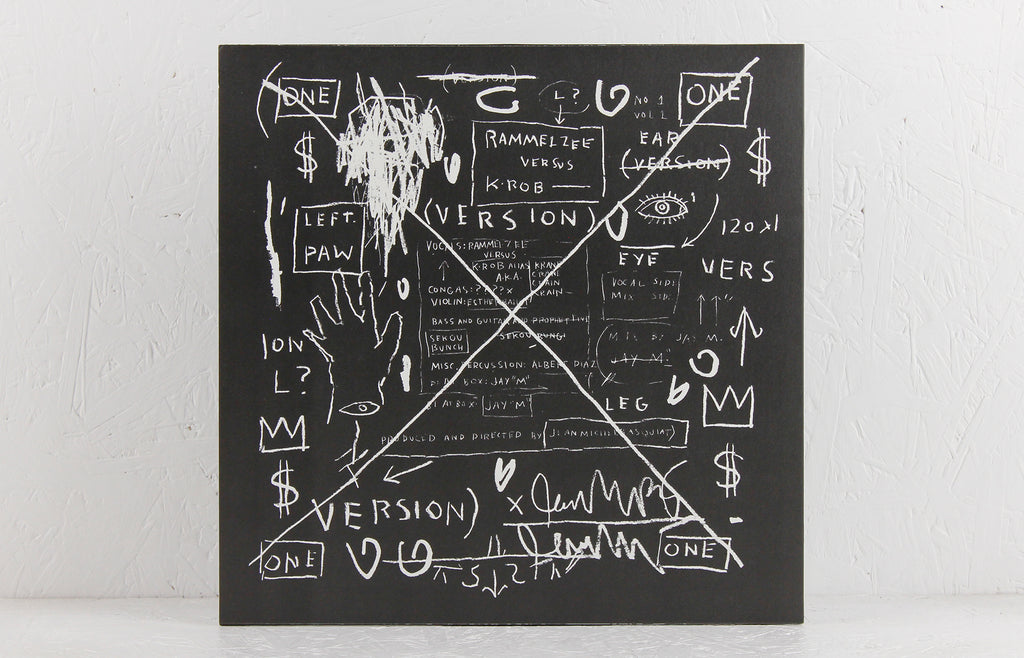 (VERSION)
ONE
L?
NO 1
VOL 1
ONE
$
RAMMELZEE
VERSUS
K-ROB —
EAR
(VERSION)
$
LEFT.
PAW
(VERSION)
120 x1
VOCALS: RAMMELZEE
VERSUS
K-ROB ALIAS KRANE
A.K.A. CRANE
CRAIN
KRAIN
CONGAS: ????x
VIOLIN: ESTHER
BASS AND GUITAR AND PROPHET FIVE
SEKOU
BUNCH
SEKOU BUNCH
MISC. PERCUSSION: ALBERT DIAZ
BOX: JAY "M"
BEATBOX: JAY "M"
EYE
VOCAL SIDE
MIX SIDE
VERS
JAY M.
JAY M.
LEG
PRODUCED AND DIRECTED BY JEAN MICHEL BASQUIAT)
ION
L?
$
$
VERSION)
x
ONE
ONE